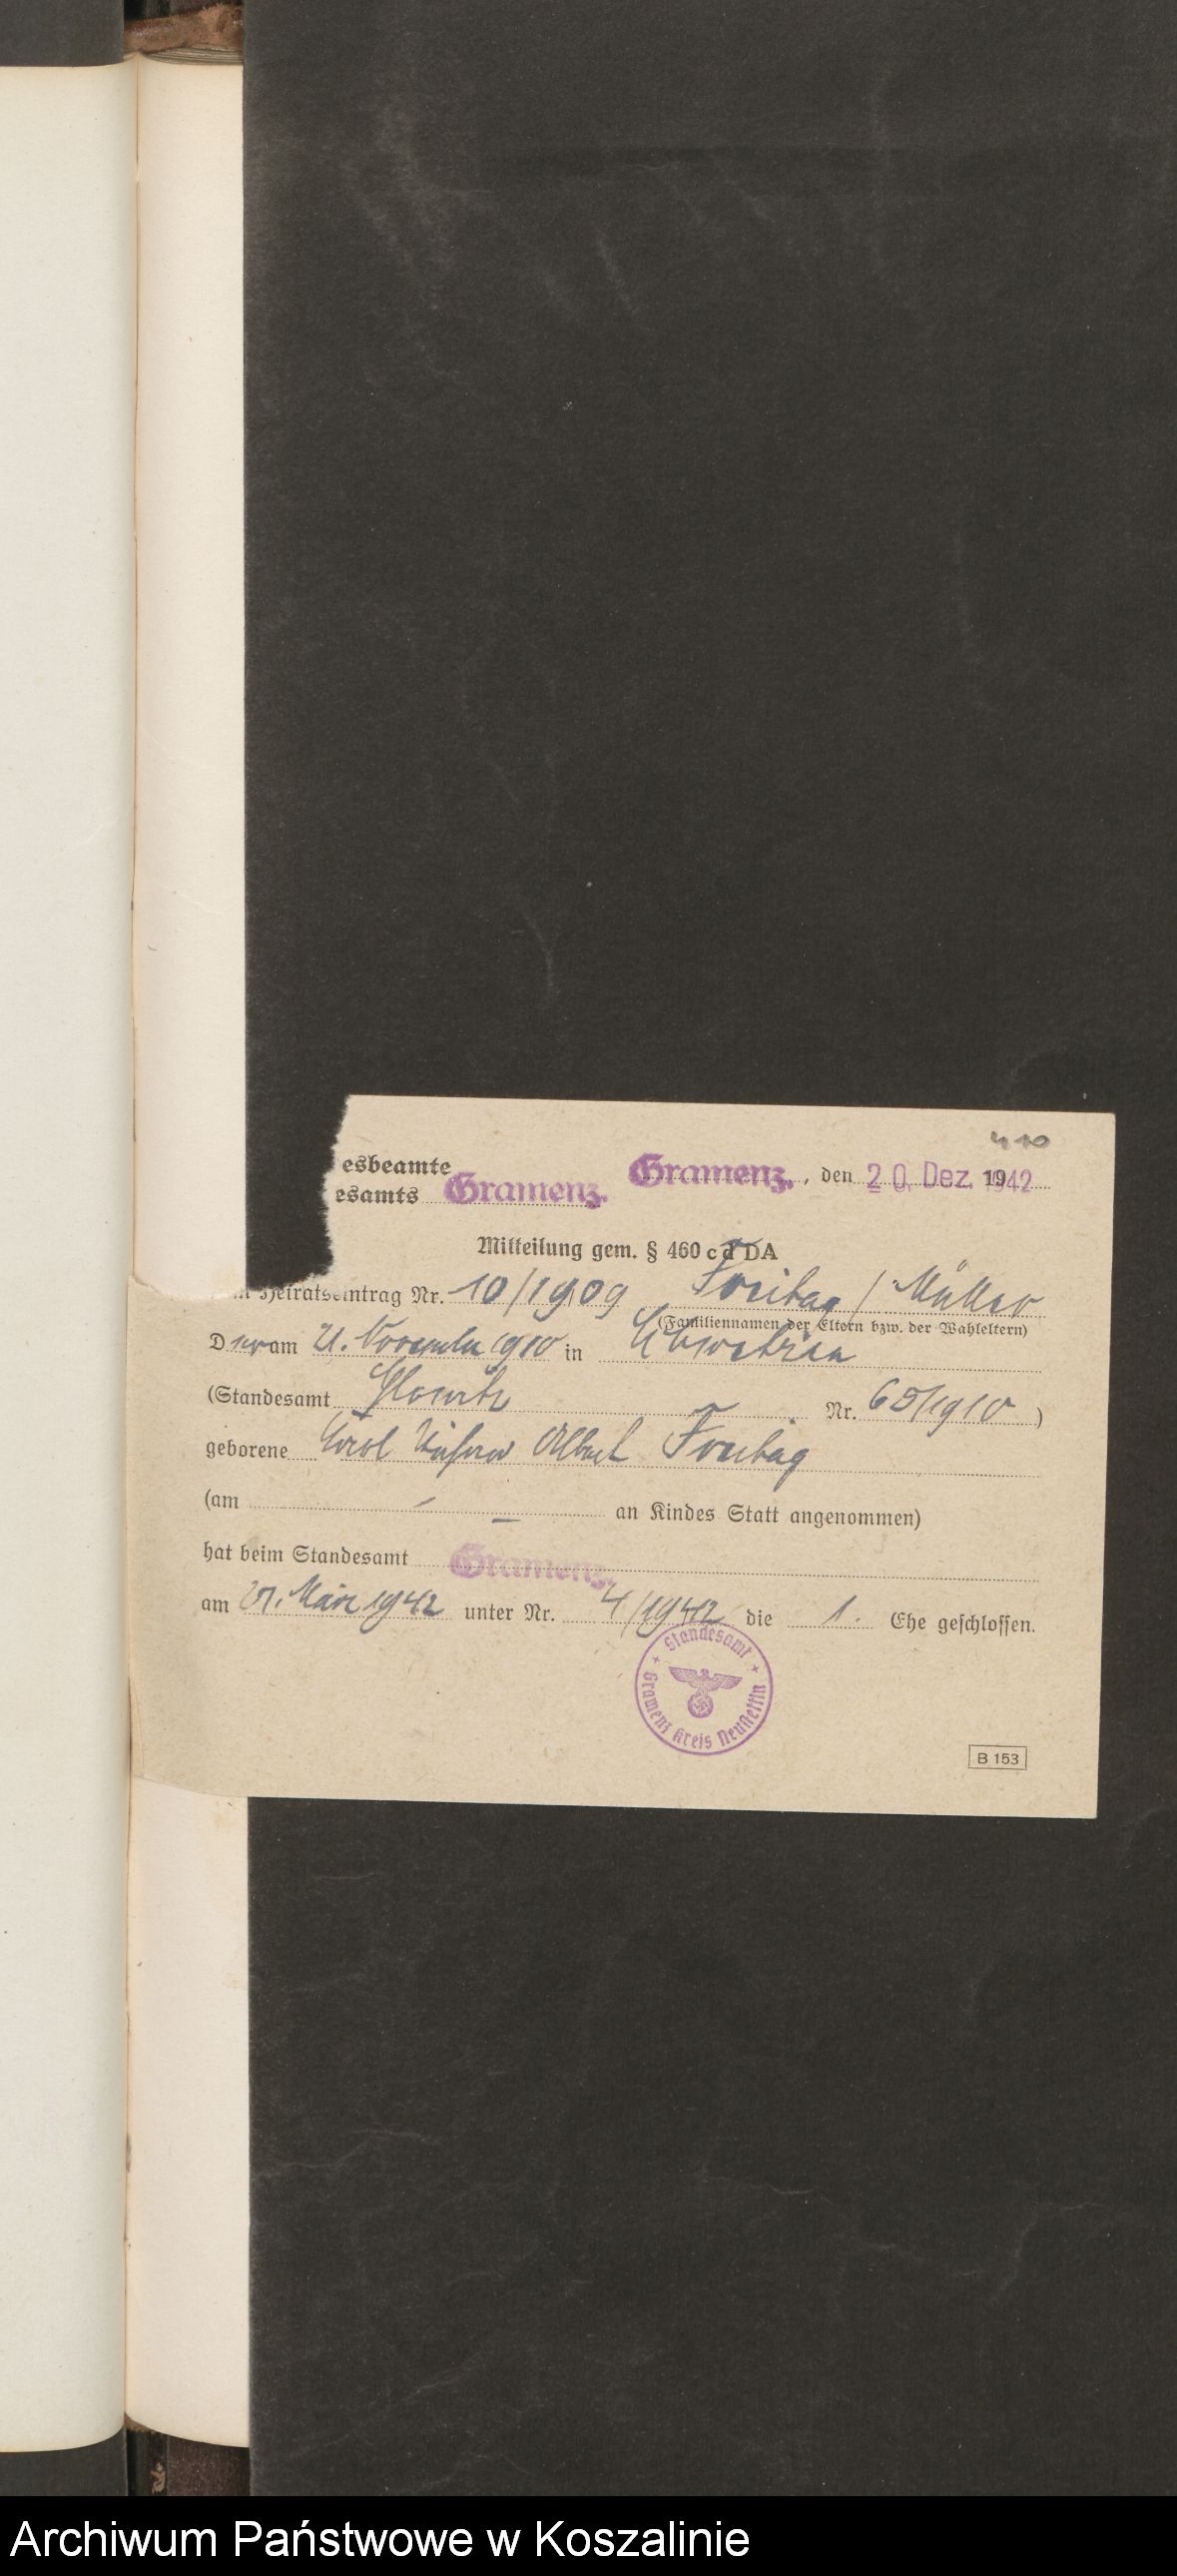 410
esbeamte
esamts Gramenz. Gramenz., den 20. Dez. 1942
Mitteilung gem. § 460 c d DA
Heiratseintrag Nr. 10/1909 Freitag / Müller
(Familiennamen der Eltern bzw. der Wahleltern)
Der am 21. November 1910 in
(Standesamt Glowitz Nr. 65/1910)
geborene Karl Albert Freitag
(am — an Kindes Statt angenommen)
hat beim Standesamt Gramenz.
am 27. März 1942 unter Nr. 4/1942 die 1. Ehe geschlossen.
Standesamt
Gramenz Kreis Neustettin
B 153
Archiwum Państwowe w Koszalinie